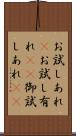 お試しあれ
お試し有
れ 御試
しあれ